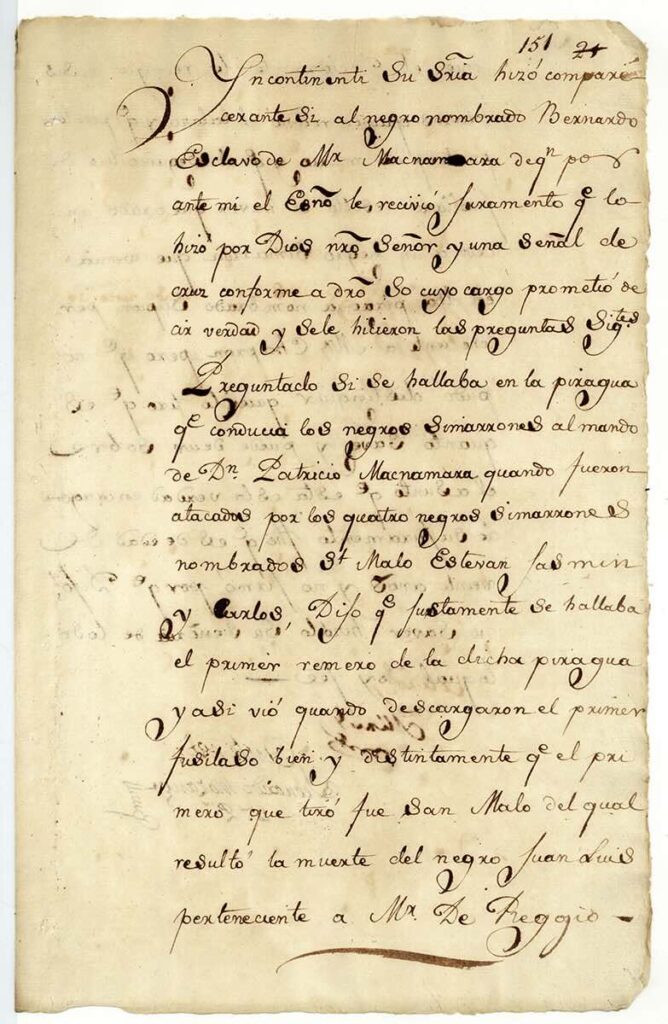 151 24
Yncontinenti su sria hizó compare
cer ante si al negro nombrado Bernardo
Esclavo de Mr Macnamara de qn por
ante mi el Esno le, recivió juramento qe lo
hizó por Dios nro señor y una señal de
cruz conforme a dro so cuyo cargo prometió de
cir verdad y sele hicieron las preguntas sigtes
Preguntado si se hallaba en la piragua
qe conducia los negros simarrones al mando
de Dn. Patricio Macnamara quando fueron
atacados por los quatro negros simarrones
nombrados St Malo Estevan Jasmin
y Carlos, Dijo qe justamente se hallaba
el primer remero de la dicha piragua
y asi vió quando descargaron el primer
fusilaso bien y distintamente qe el pri
mero que tiró fue san Malo del qual
resultó la muerte del negro Juan Luis
perteneciente a Mr. De Reggio